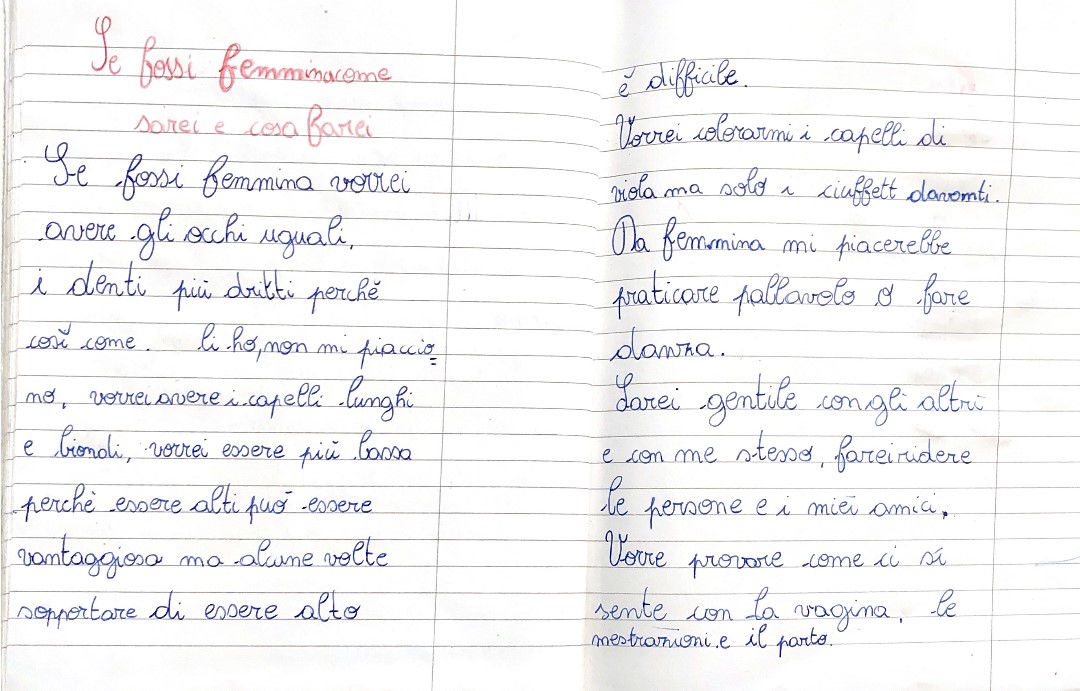 Se fossi femmina come
sarei e cosa farei
Se fossi femmina vorrei
avere gli occhi uguali,
i denti più dritti perché
così come li ho, non mi piaccio=
no, vorrei avere i capelli lunghi
e biondi, vorrei essere più bassa
perché essere alti può essere
vantaggiosa ma alcune volte
sopportare di essere alto
è difficile.
Vorrei colorarmi i capelli di
viola ma solo i ciuffett davanti.
Da femmina mi piacerebbe
praticare pallavolo o fare
danza.
Sarei gentile con gli altri
e con me stesso, farei ridere
le persone e i miei amici,
Vorre provare come ci si
sente con la vagina, le
mestrazioni e il parto.